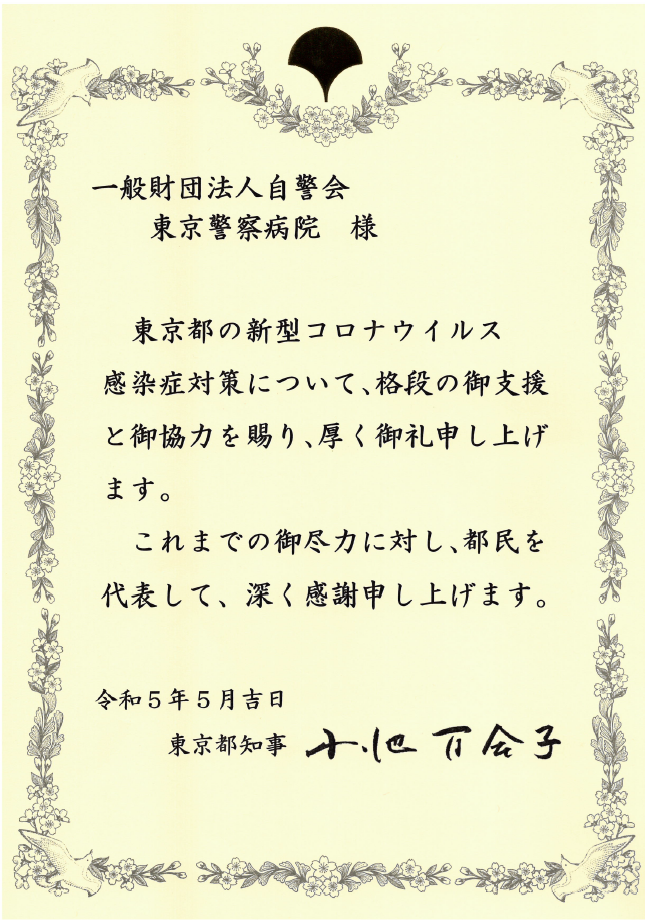 一般財団法人自警会
東京警察病院 様
東京都の新型コロナウイルス
感染症対策について、格段の御支援
と御協力を賜り、厚く御礼申し上げ
ます。
これまでの御尽力に対し、都民を
代表して、深く感謝申し上げます。
令和5年5月吉日
東京都知事 小池百合子